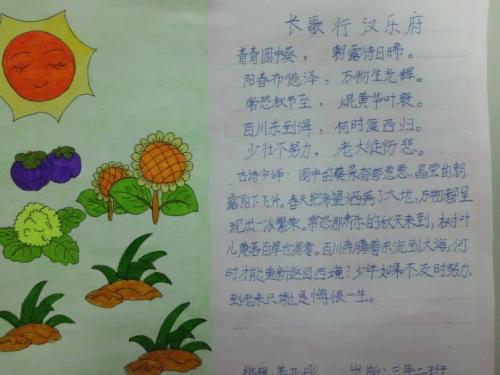 长歌行 汉乐府
青青园中葵，朝露待日晞。
阳春布德泽，万物生光辉。
常恐秋节至，焜黄华叶衰。
百川东到海，何时复西归。
少壮不努力，老大徒伤悲。
古诗今译：园中的葵菜郁郁葱葱，晶莹的朝
露阳下飞升。春天把希望洒满了大地，万物都呈
现出一派繁荣。常恐那肃杀的秋天来到，树叶
儿黄百草也凋零。百川奔腾着东流到大海，何
时才能重新返回西境？少年如果不及时努力，
到老来只能是悔恨一生。
编辑 姜 出版：二年二班